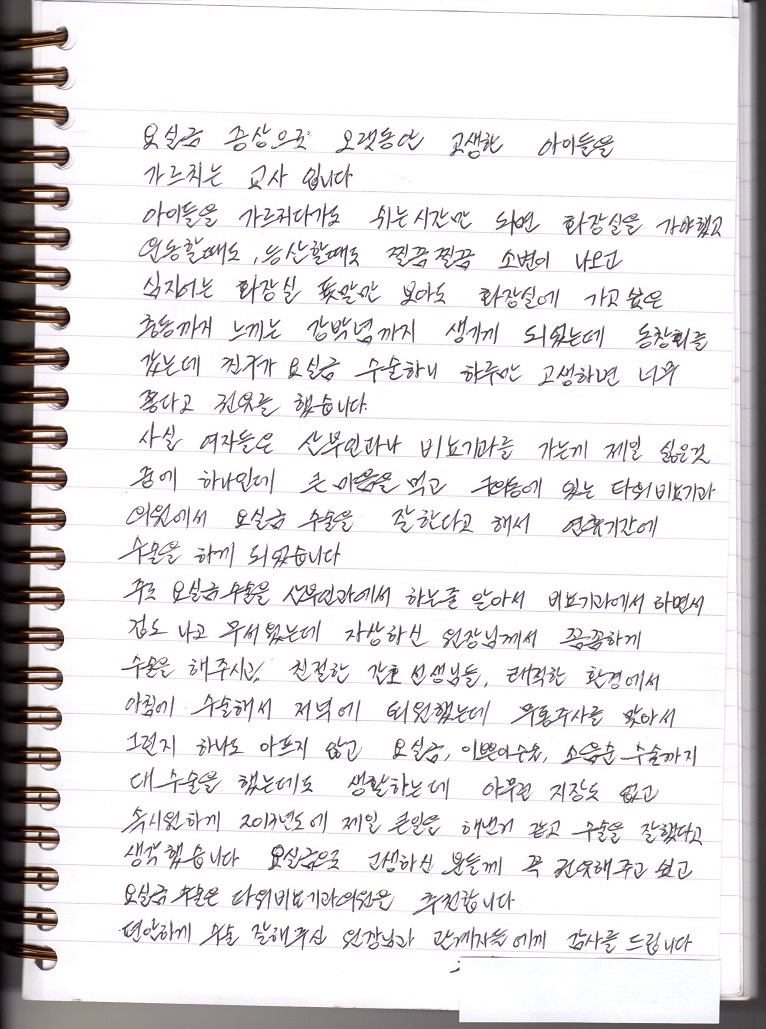 요실금 증상으로 오랫동안 고생한 아이들을
가르치는 교사 입니다
아이들을 가르치다가도 쉬는시간만 되면 화장실을 가야했고
운동할때도, 등산할때도 찔끔찔끔 소변이 나오고
심지어는 화장실 푯말만 보아도 화장실에 가고 싶은
충동까지 느끼는 강박념까지 생기게 되었는데 동창회를
갔는데 친구가 요실금 수술하니 하루만 고생하면 너무
좋다고 권유를 했습니다.
사실 여자들은 산부인과나 비뇨기과를 가는게 제일 싫은것
중에 하나인데 큰 마음을 먹고 있는 타워비뇨기과
의원에서 요실금 수술을 잘한다고 해서 연휴기간에
수술을 하게 되었습니다
주로 요실금수술을 산부인과에서 하는줄 알아서 비뇨기과에서 하면서
겁도 나고 무서웠는데 자상하신 원장님께서 꼼꼼하게
수술을 해주시고, 친절한 간호 선생님들, 쾌적한 환경에서
아침에 수술해서 저녁에 퇴원했는데 무통주사를 맞아서
그런지 하나도 아프지 않고 요실금, 이쁜이수술, 소음순 수술까지
대수술을 했는데도 생활하는데 아무런 지장도 없고
속시원하게 2013년도에 제일 큰일을 해낸거 같고 수술을 잘했다고
생각했습니다 요실금으로 고생하신 분들께 꼭 권유해주고 싶고
요실금 수술은 타워비뇨기과의원은 추천합니다
편안하게 수술 잘해주신 원장님과 관계자들에게 감사를 드립니다